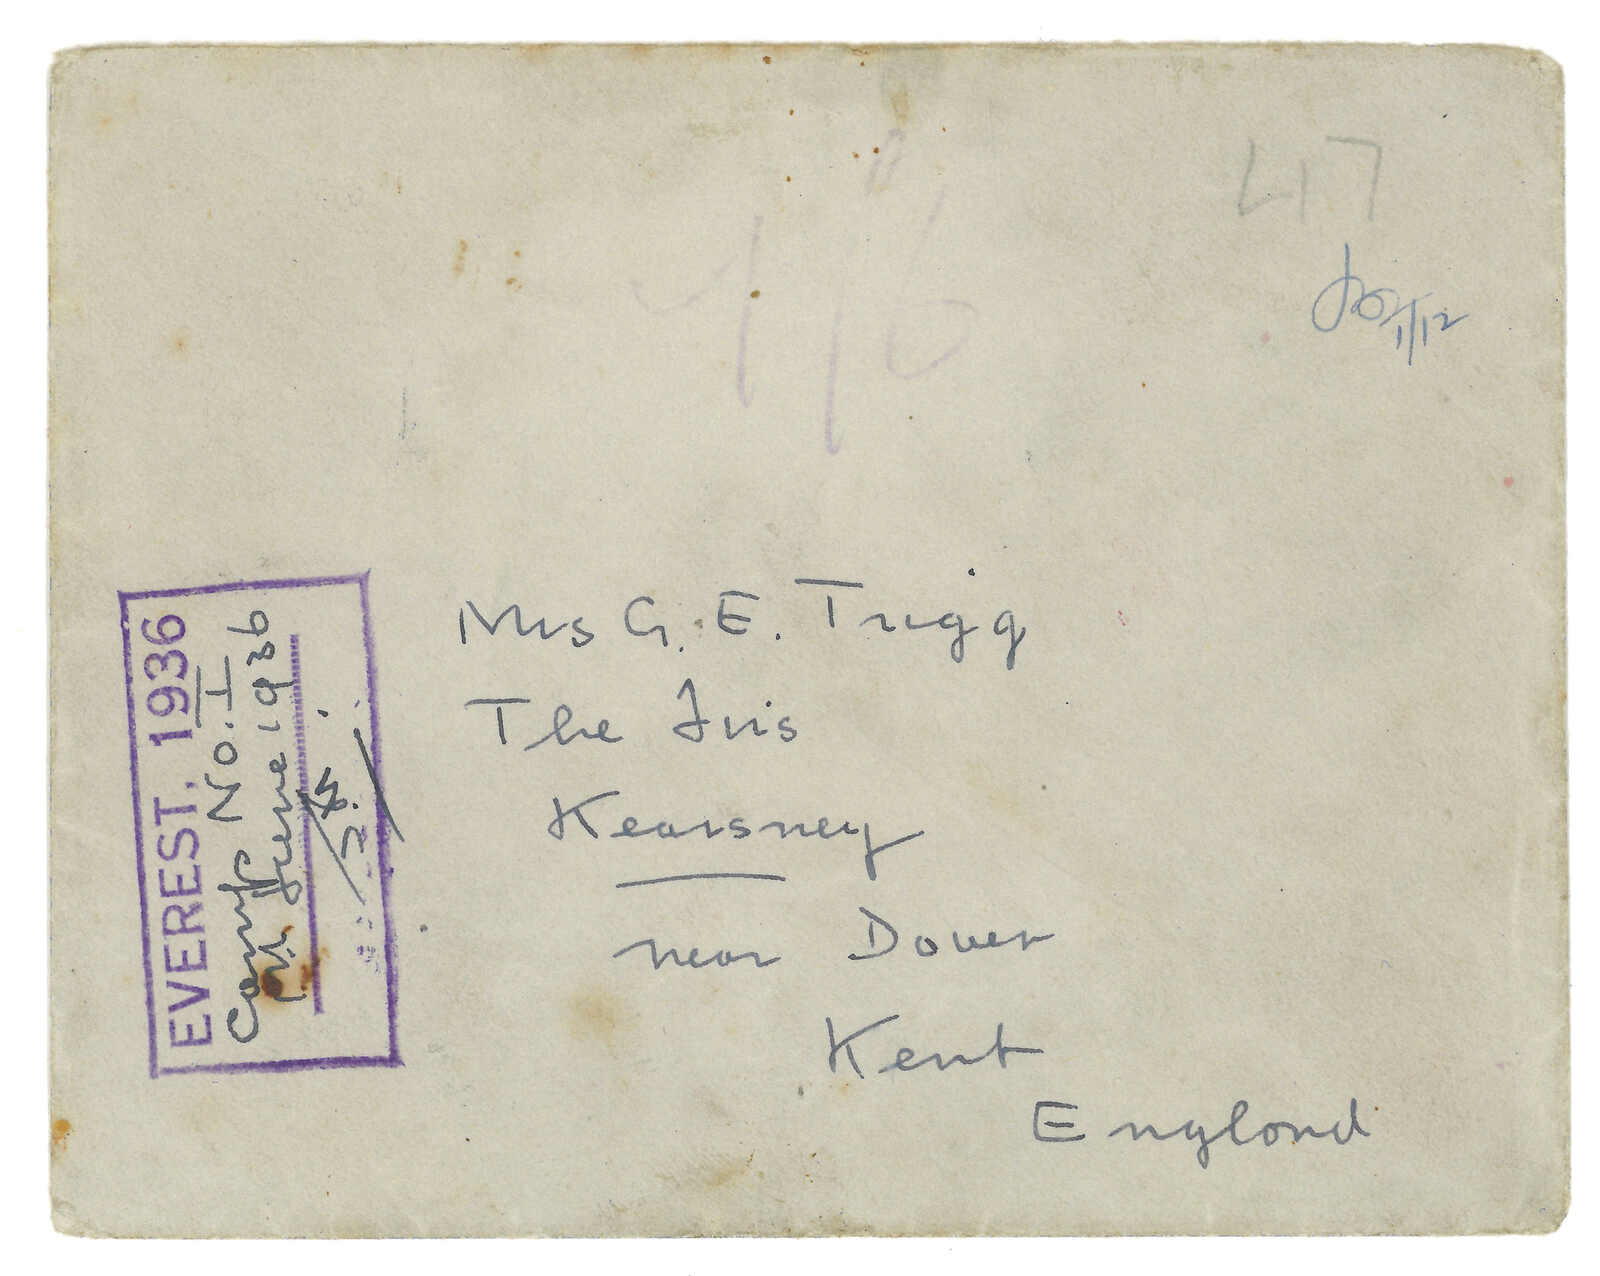 417
1/6
1/12
EVEREST. 1936
Camp No. I
1st June 1936
Mrs G. E. Trigg
The Iris
Kearsney
near Dover
Kent
England